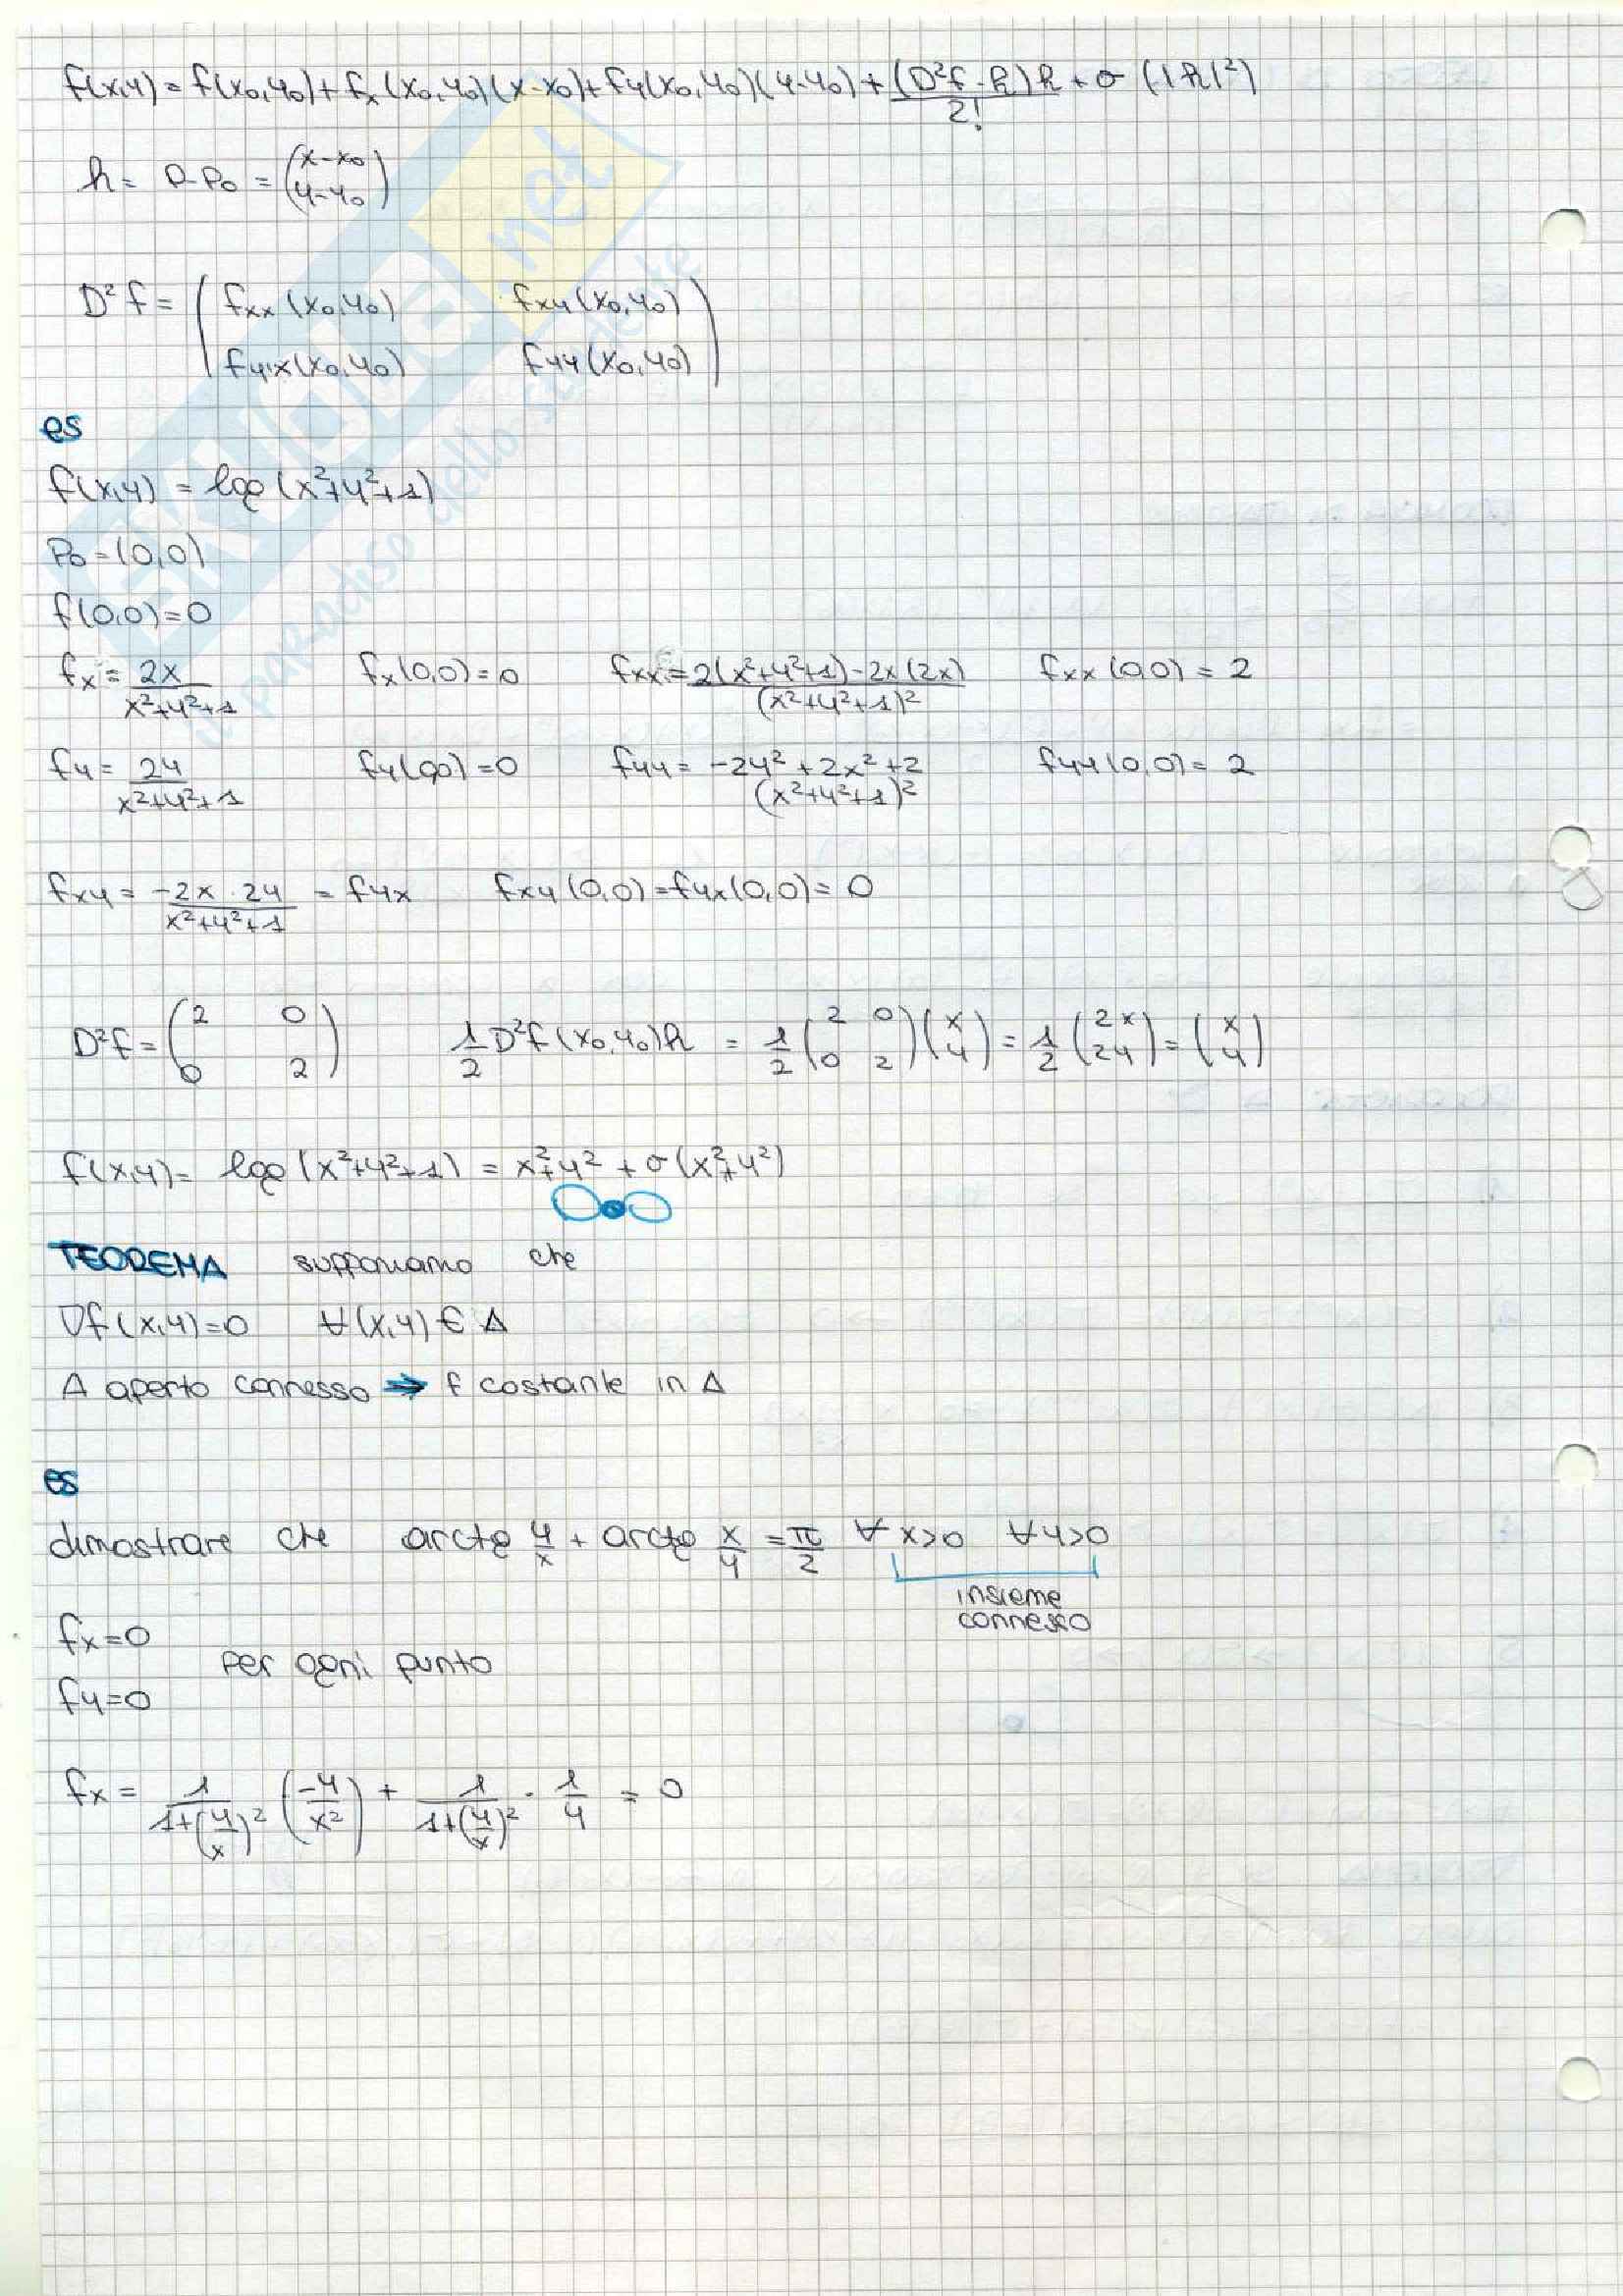 f(x,y) = f(x₀,y₀) + fx (x₀,y₀)(x-x₀) + fy(x₀,y₀)(y-y₀) + (D²f·h)h/2! + σ(|h|²)
h = P-P₀ = (x-x₀
y-y₀)
D²f = (fxx(x₀,y₀) fxy(x₀,y₀)
fyx(x₀,y₀) fyy(x₀,y₀))
es
f(x,y) = log(x²+y²+1)
P₀=(0,0)
f(0,0)=0
fx = 2x/(x²+y²+1) fx(0,0)=0 fxx = 2(x²+y²+1)-2x(2x)/(x²+y²+1)² fxx(0,0) = 2
fy = 2y/(x²+y²+1) fy(0,0)=0 fyy = -2y²+2x²+2/(x²+y²+1)² fyy(0,0) = 2
fxy = -2x·2y/(x²+y²+1) = fyx fxy(0,0)=fyx(0,0)=0
D²f = (2 0
0 2) 1/2 D²f(x₀,y₀)h = 1/2 (2 0
0 2)(x
y) = 1/2 (2x
2y) = (x
y)
f(x,y) = log(x²+y²+1) = x²+y² + σ(x²+y²)
TEOREMA supponiamo che
∇f(x,y)=0 ∀(x,y)∈A
A aperto connesso ⇒ f costante in A
es
dimostrare che arctg y/x + arctg x/y = π/2 ∀x>0 ∀y>0
insieme
connesso
fx=0
per ogni punto
fy=0
fx = 1/(1+(y/x)²) (-y/x²) + 1/(1+(y/x)²) · 1/y = 0
SKUOLA.net
il paradiso dello studente